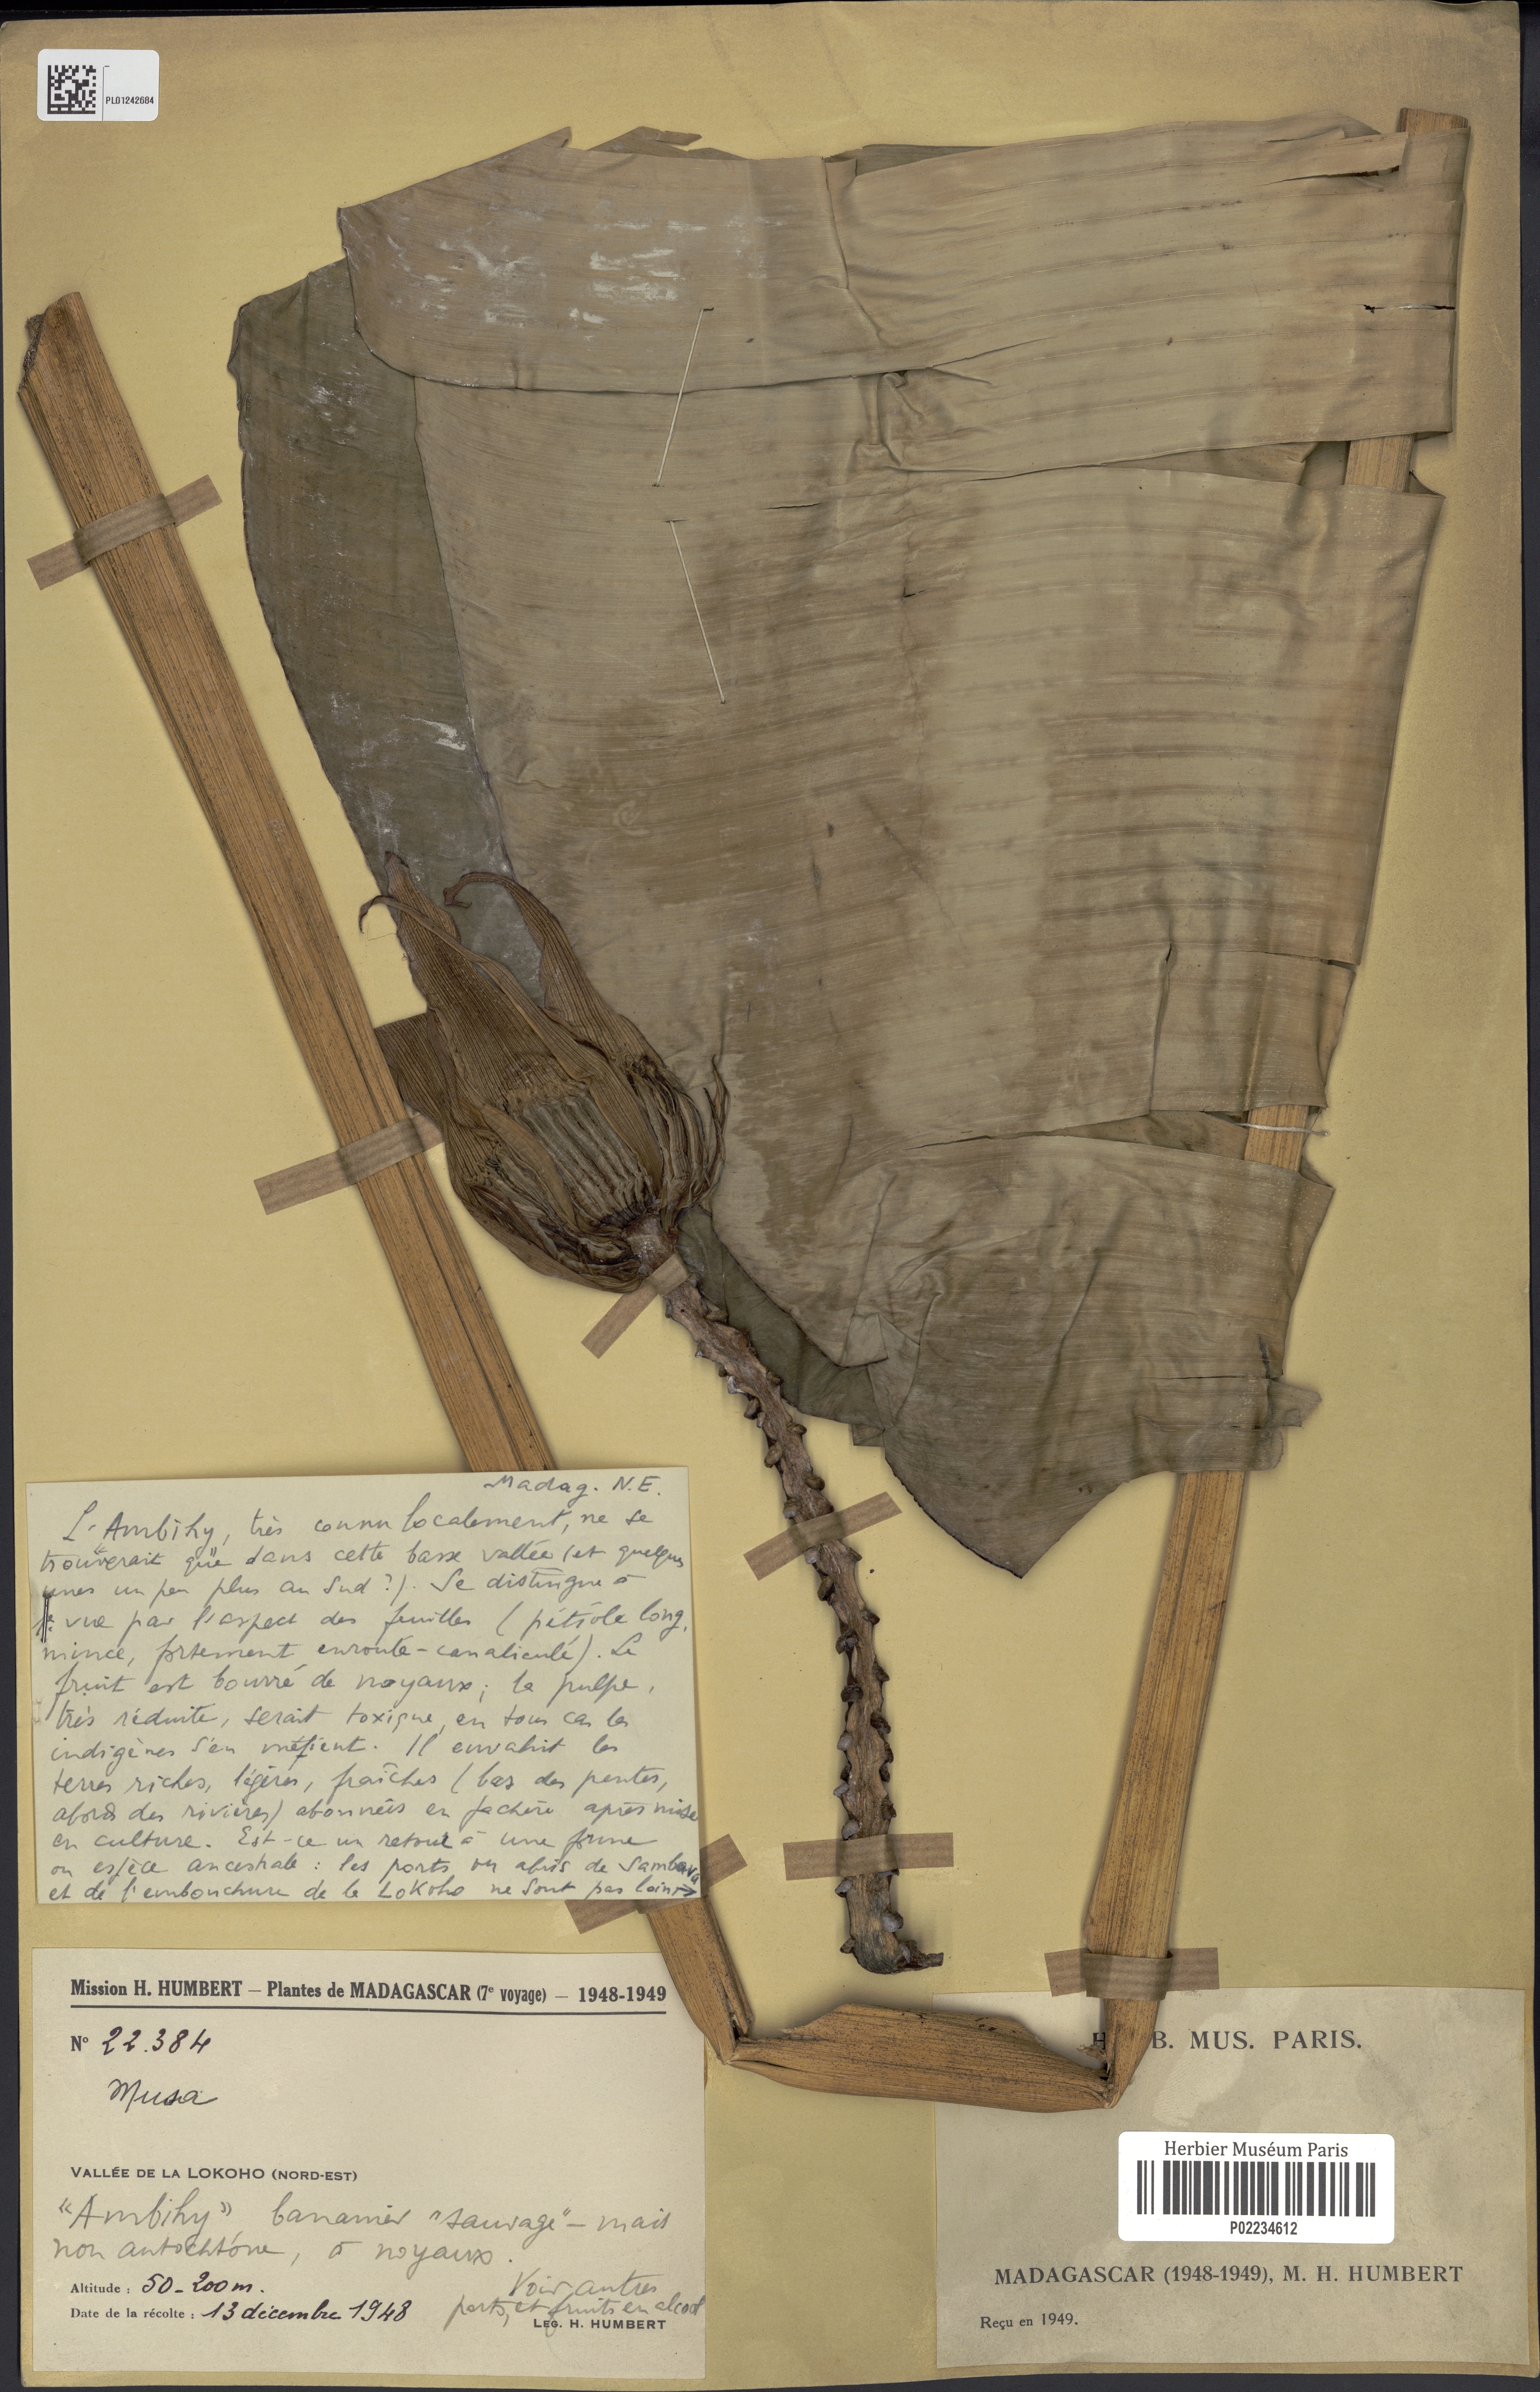 PL01242684
Madag. N.E.
L'"Ambihy", très connu localement, ne se
trouverait que dans cette basse vallée (et quelques
unes un peu plus au Sud ?). Se distingue à
1e vue par l'aspect des feuilles (pétiole long,
mince, fortement enroulé-canaliculé). Le
fruit est bourré de noyaux; la pulpe,
très réduite, serait toxique, en tous cas les
indigènes s'en méfient. Il envahit les
terres riches, légères, fraîches (bas des pentes,
abords des rivières) abonnées en jachère après mise
en culture. Est-ce un retour à une forme
ou espèce ancestrale : les ports ou abris de Sambava
et de l'embouchure de la Lokoho ne sont pas loin →
Mission H. HUMBERT — Plantes de MADAGASCAR (7e voyage) — 1948-1949
N° 22.384
Musa
VALLÉE DE LA LOKOHO (NORD-EST)
"Ambihy" bananier "sauvage" - mais
non autochtone, à noyaux.
Altitude : 50-200 m.
Voir autres
Date de la récolte : 13 décembre 1948
parts, et fruits en alcool
LEG. H. HUMBERT
H B. MUS. PARIS.
Herbier Muséum Paris
P02234612
MADAGASCAR (1948-1949), M. H. HUMBERT
Reçu en 1949.